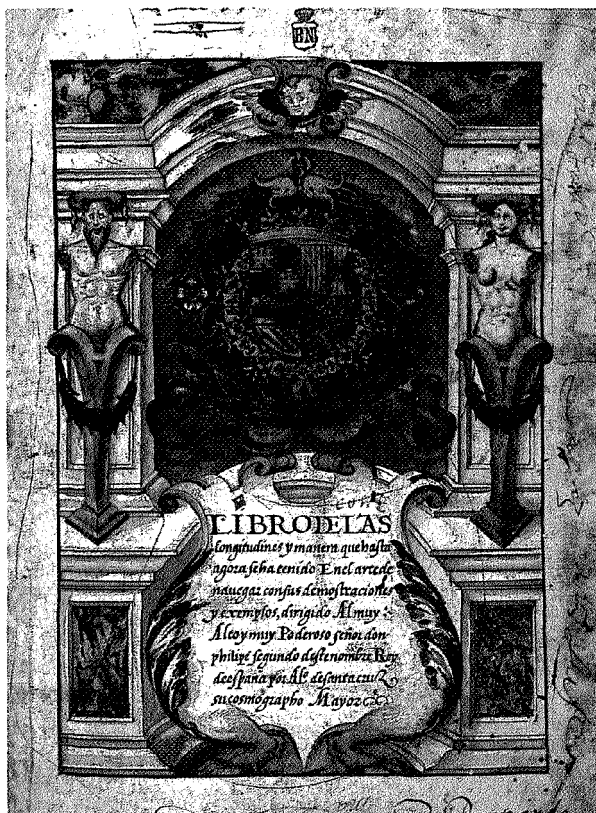 LIBRO DE LAS
longitudines y manera que hasta
agora se ha tenido En el arte de
nauegar con sus demostraciones
y exemplos, dirigido Al muy
Alto y muy Poderoso señor don
philipe segundo deste nombre Rey
de españa por Aº de santa cruz
su cosmographo Mayor